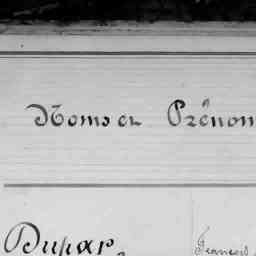 Noms et Prénom
Dupar